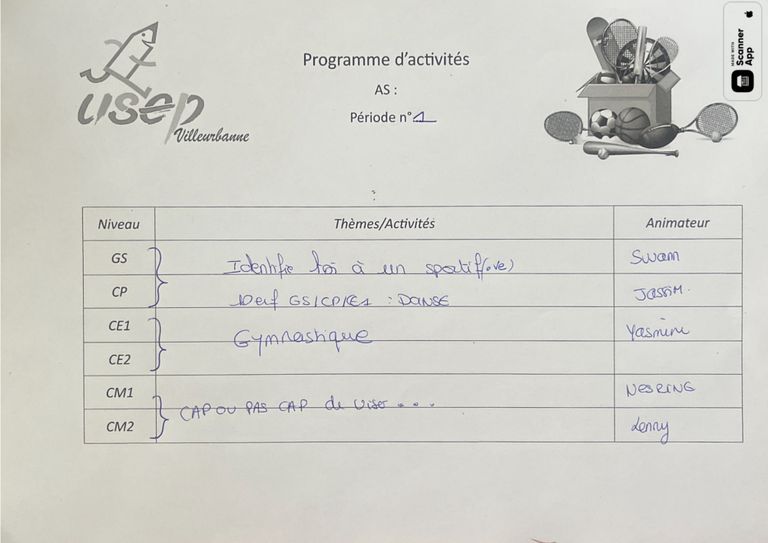 MADE WITH
Scanner App
usep
Villeurbanne
Programme d'activités
AS :
Période n°1
Niveau Thèmes/Activités Animateur
GS Identifie toi à un sportif(ive) Swam
CP Défi GS/CP/CE1 : DANSE Jassim.
CE1 Gymnastique Yasmine
CE2
CM1 NESRINE
CAP OU PAS CAP de viser...
CM2 Lenny